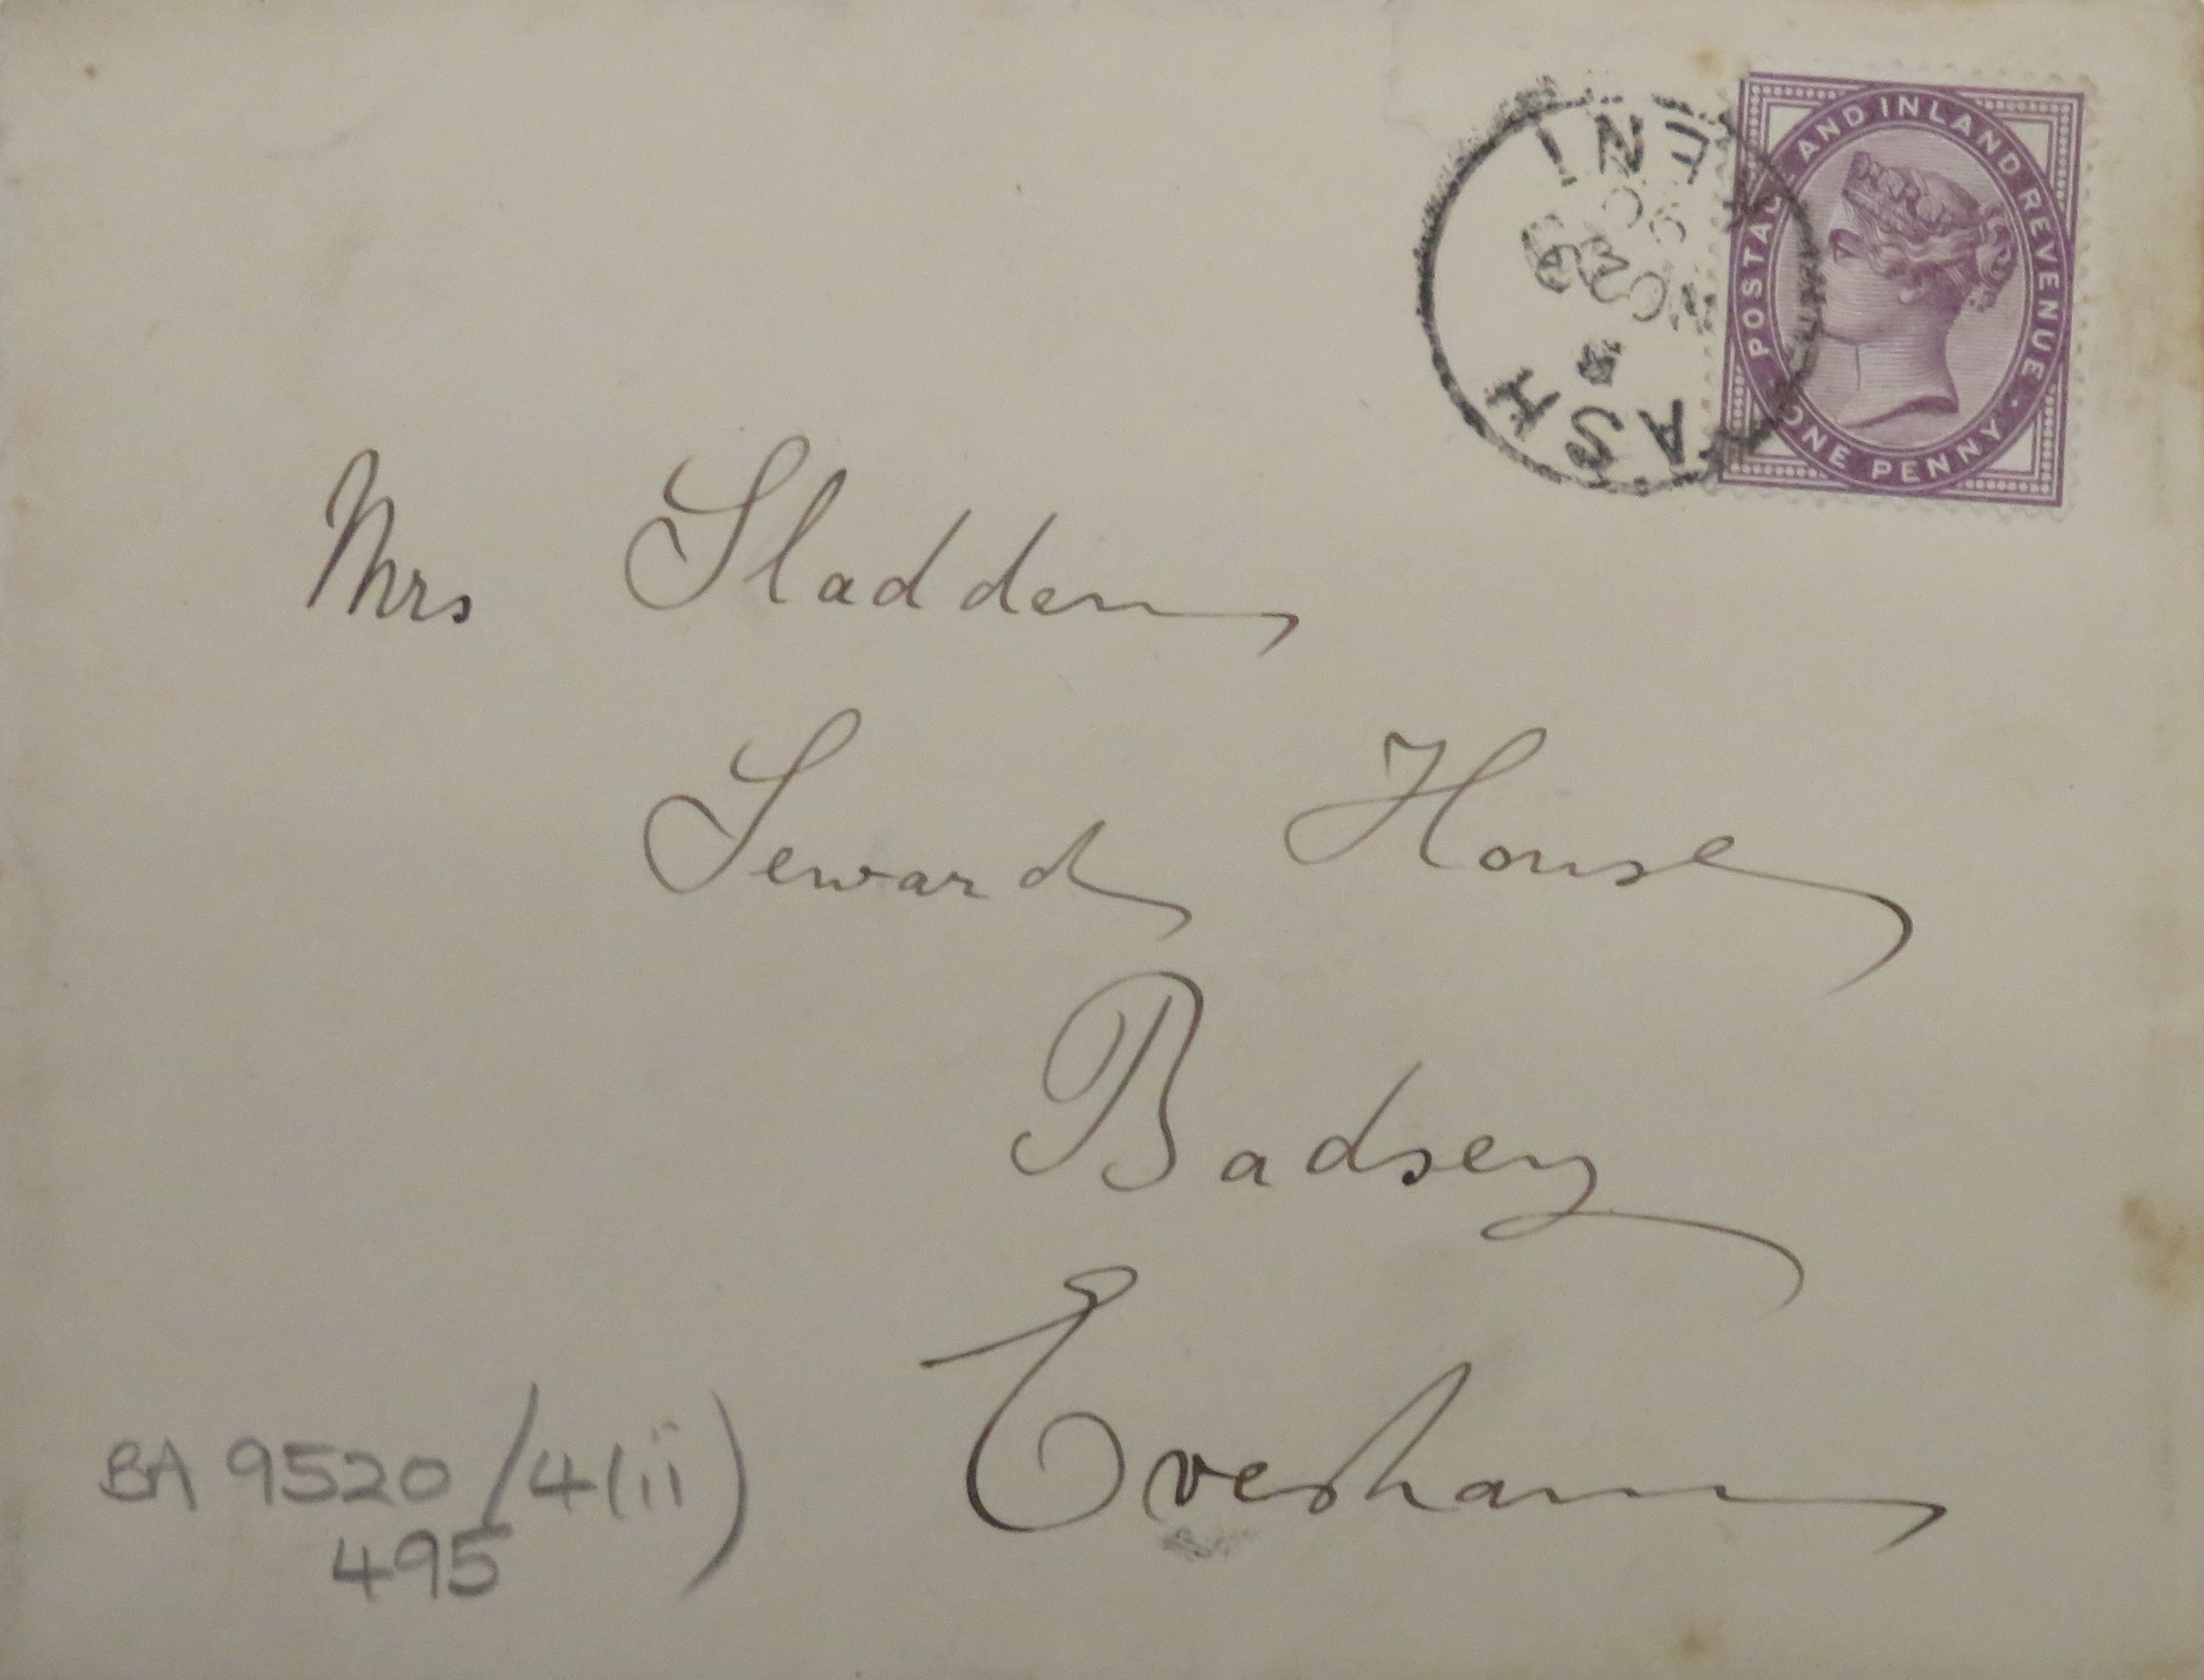 POSTAGE AND INLAND REVENUE · ONE PENNY
ASH
Mrs Sladden
Seward House
Badsey
Evesham
BA 9520/4(ii)
495